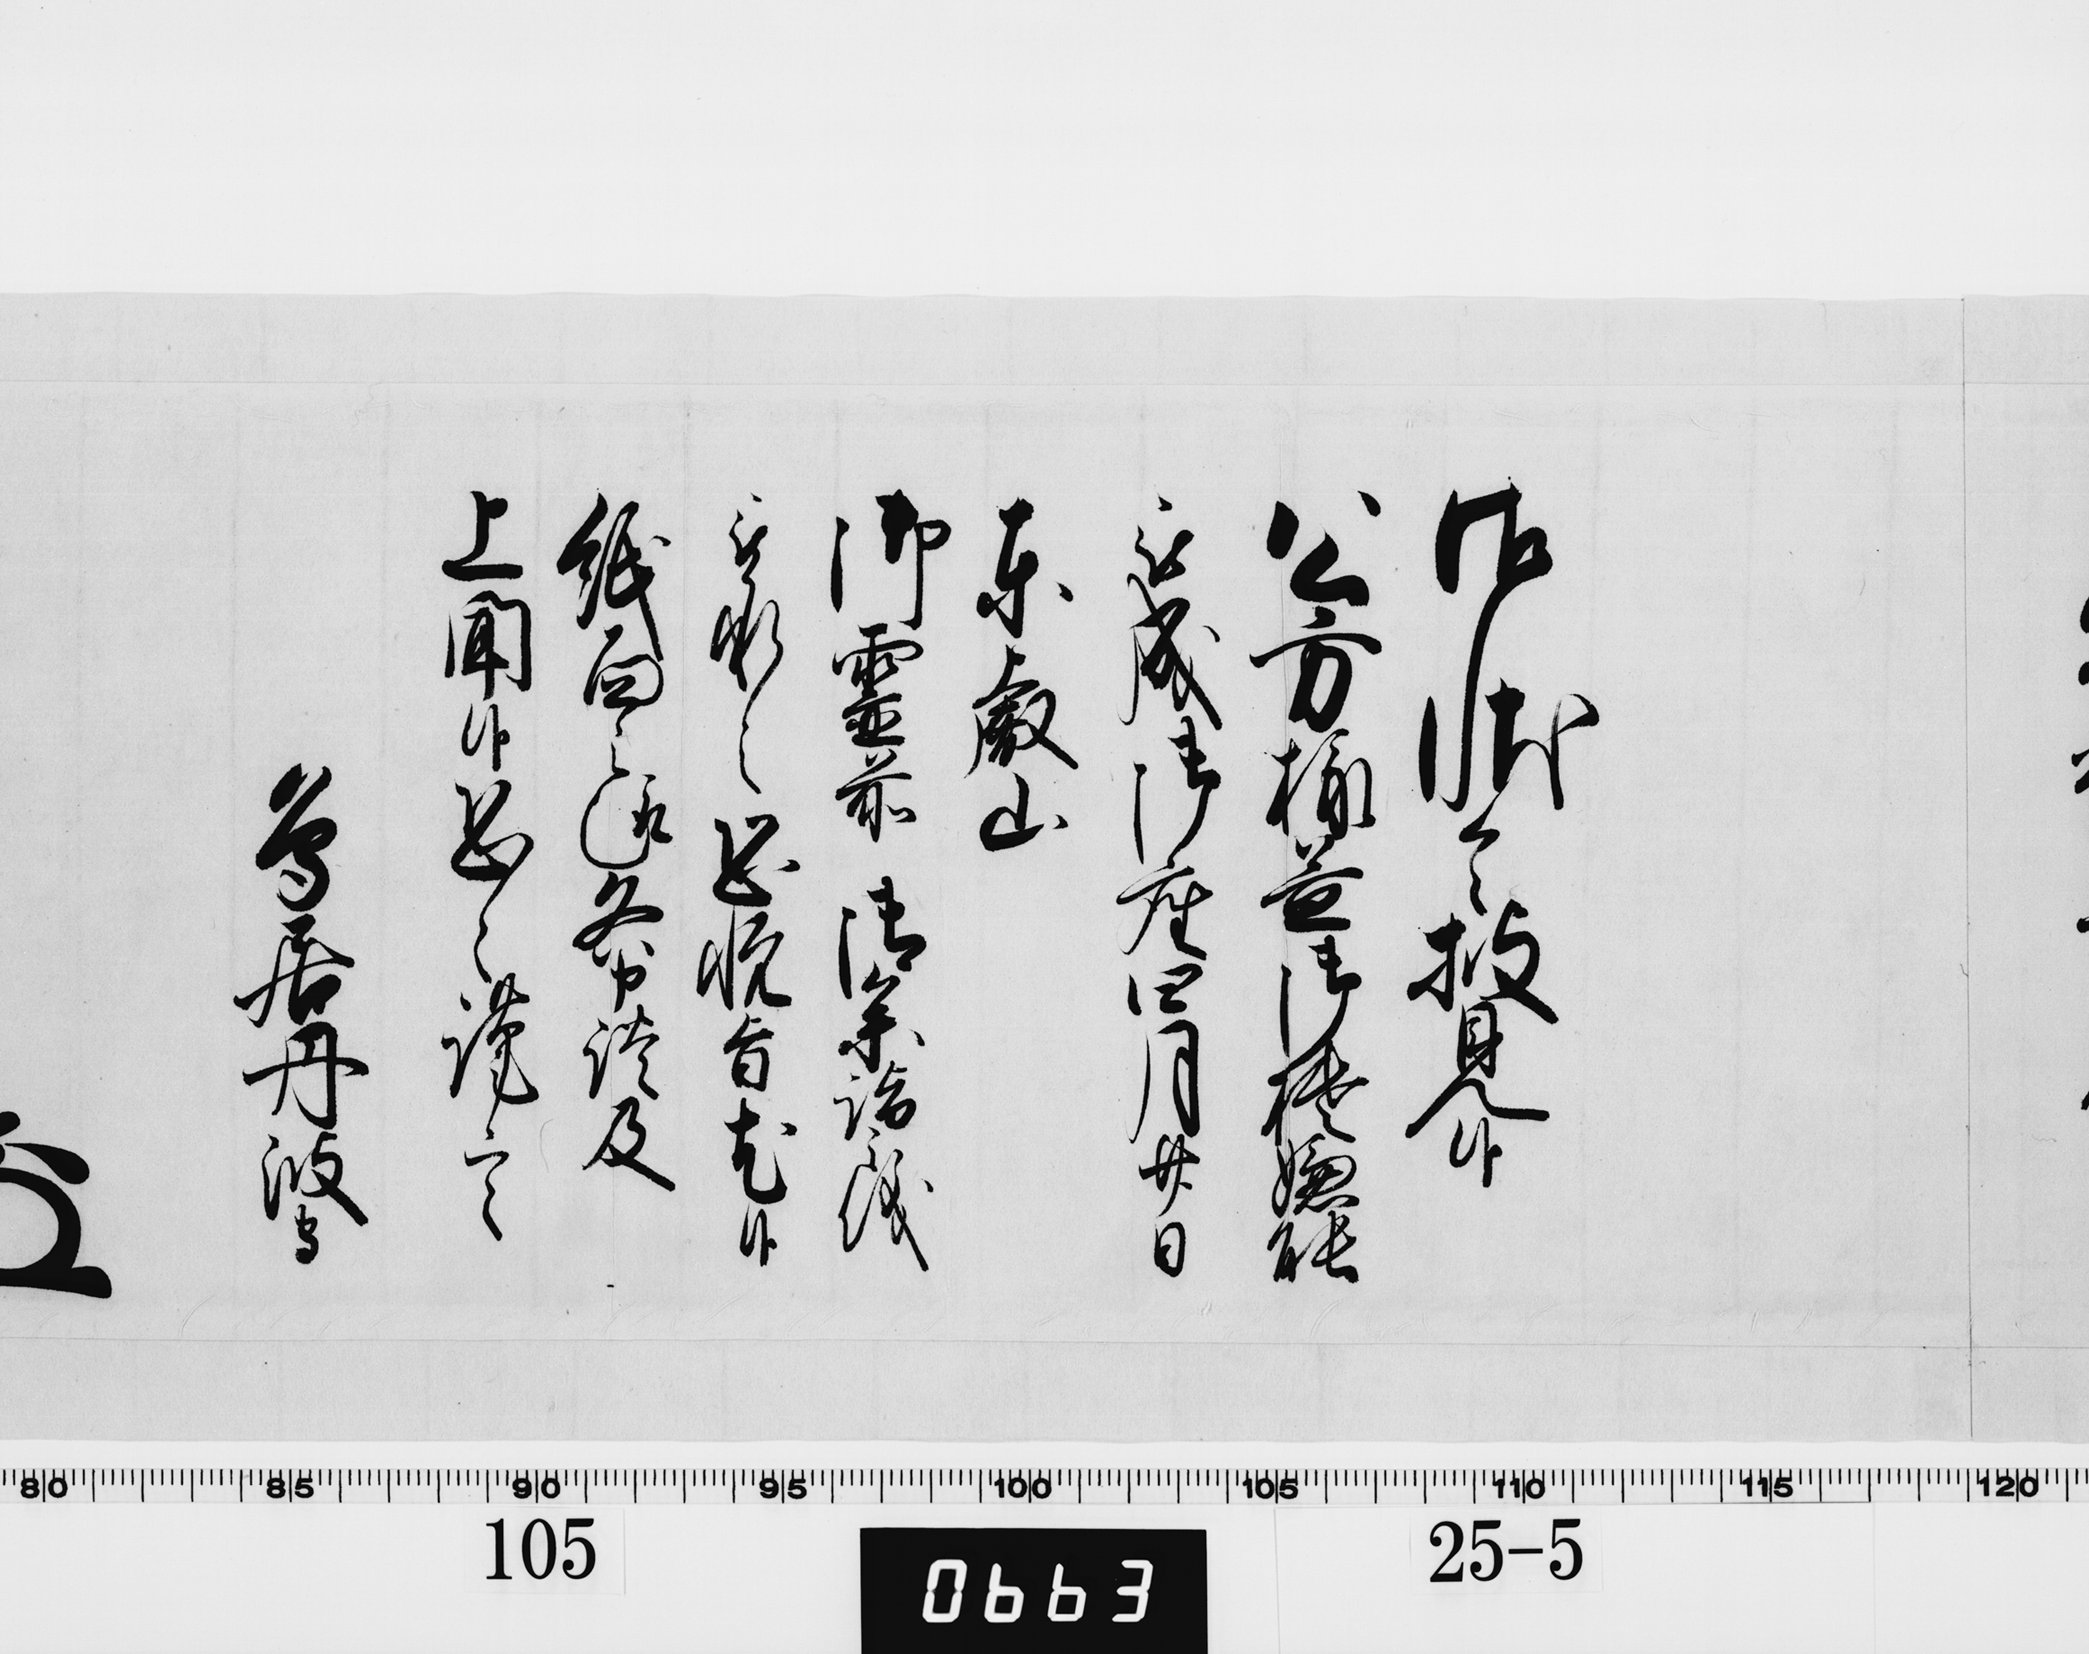 御状令披見候
公方様益御機嫌能
被成御座四月廿日
東叡山
御霊前 御参詣之儀
被承之恐悦旨尤候
紙面之趣各申談及
上聞候恐々謹言
鳥居丹波守
80 85 90 95 100 105 110 115 120
105
0663
25-5